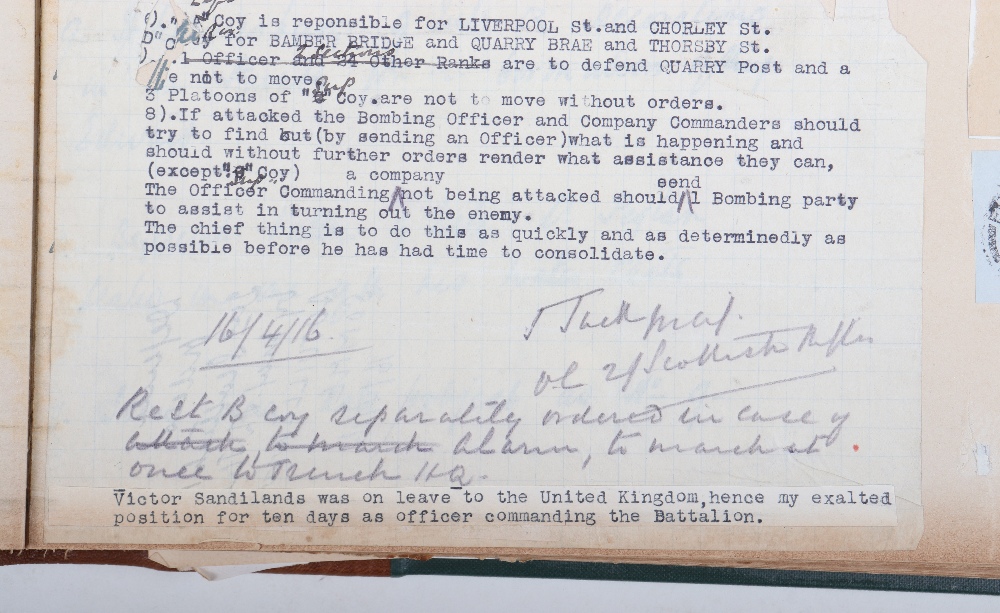 6)."A"Coy is reponsible for LIVERPOOL St.and CHORLEY St.
for BAMBER BRIDGE and QUARRY BRAE and THORSBY St.
1 Officer and 24 Other Ranks are to defend QUARRY Post and a
e not to move.
3 Platoons of " "Coy.are not to move without orders.
8).If attacked the Bombing Officer and Company Commanders should
try to find out(by sending an Officer)what is happening and
should without further orders render what assistance they can,
(except" "Coy) a company
send
The Officer Commanding not being attacked should 1 Bombing party
to assist in turning out the enemy.
The chief thing is to do this as quickly and as determinedly as
possible before he has had time to consolidate.
16/4/16.
OC 2/Scottish Rifles
B coy separately ordered in case of
attack, to march alarm, to march at
once to Trench HQ.
Victor Sandilands was on leave to the United Kingdom,hence my exalted
position for ten days as officer commanding the Battalion.